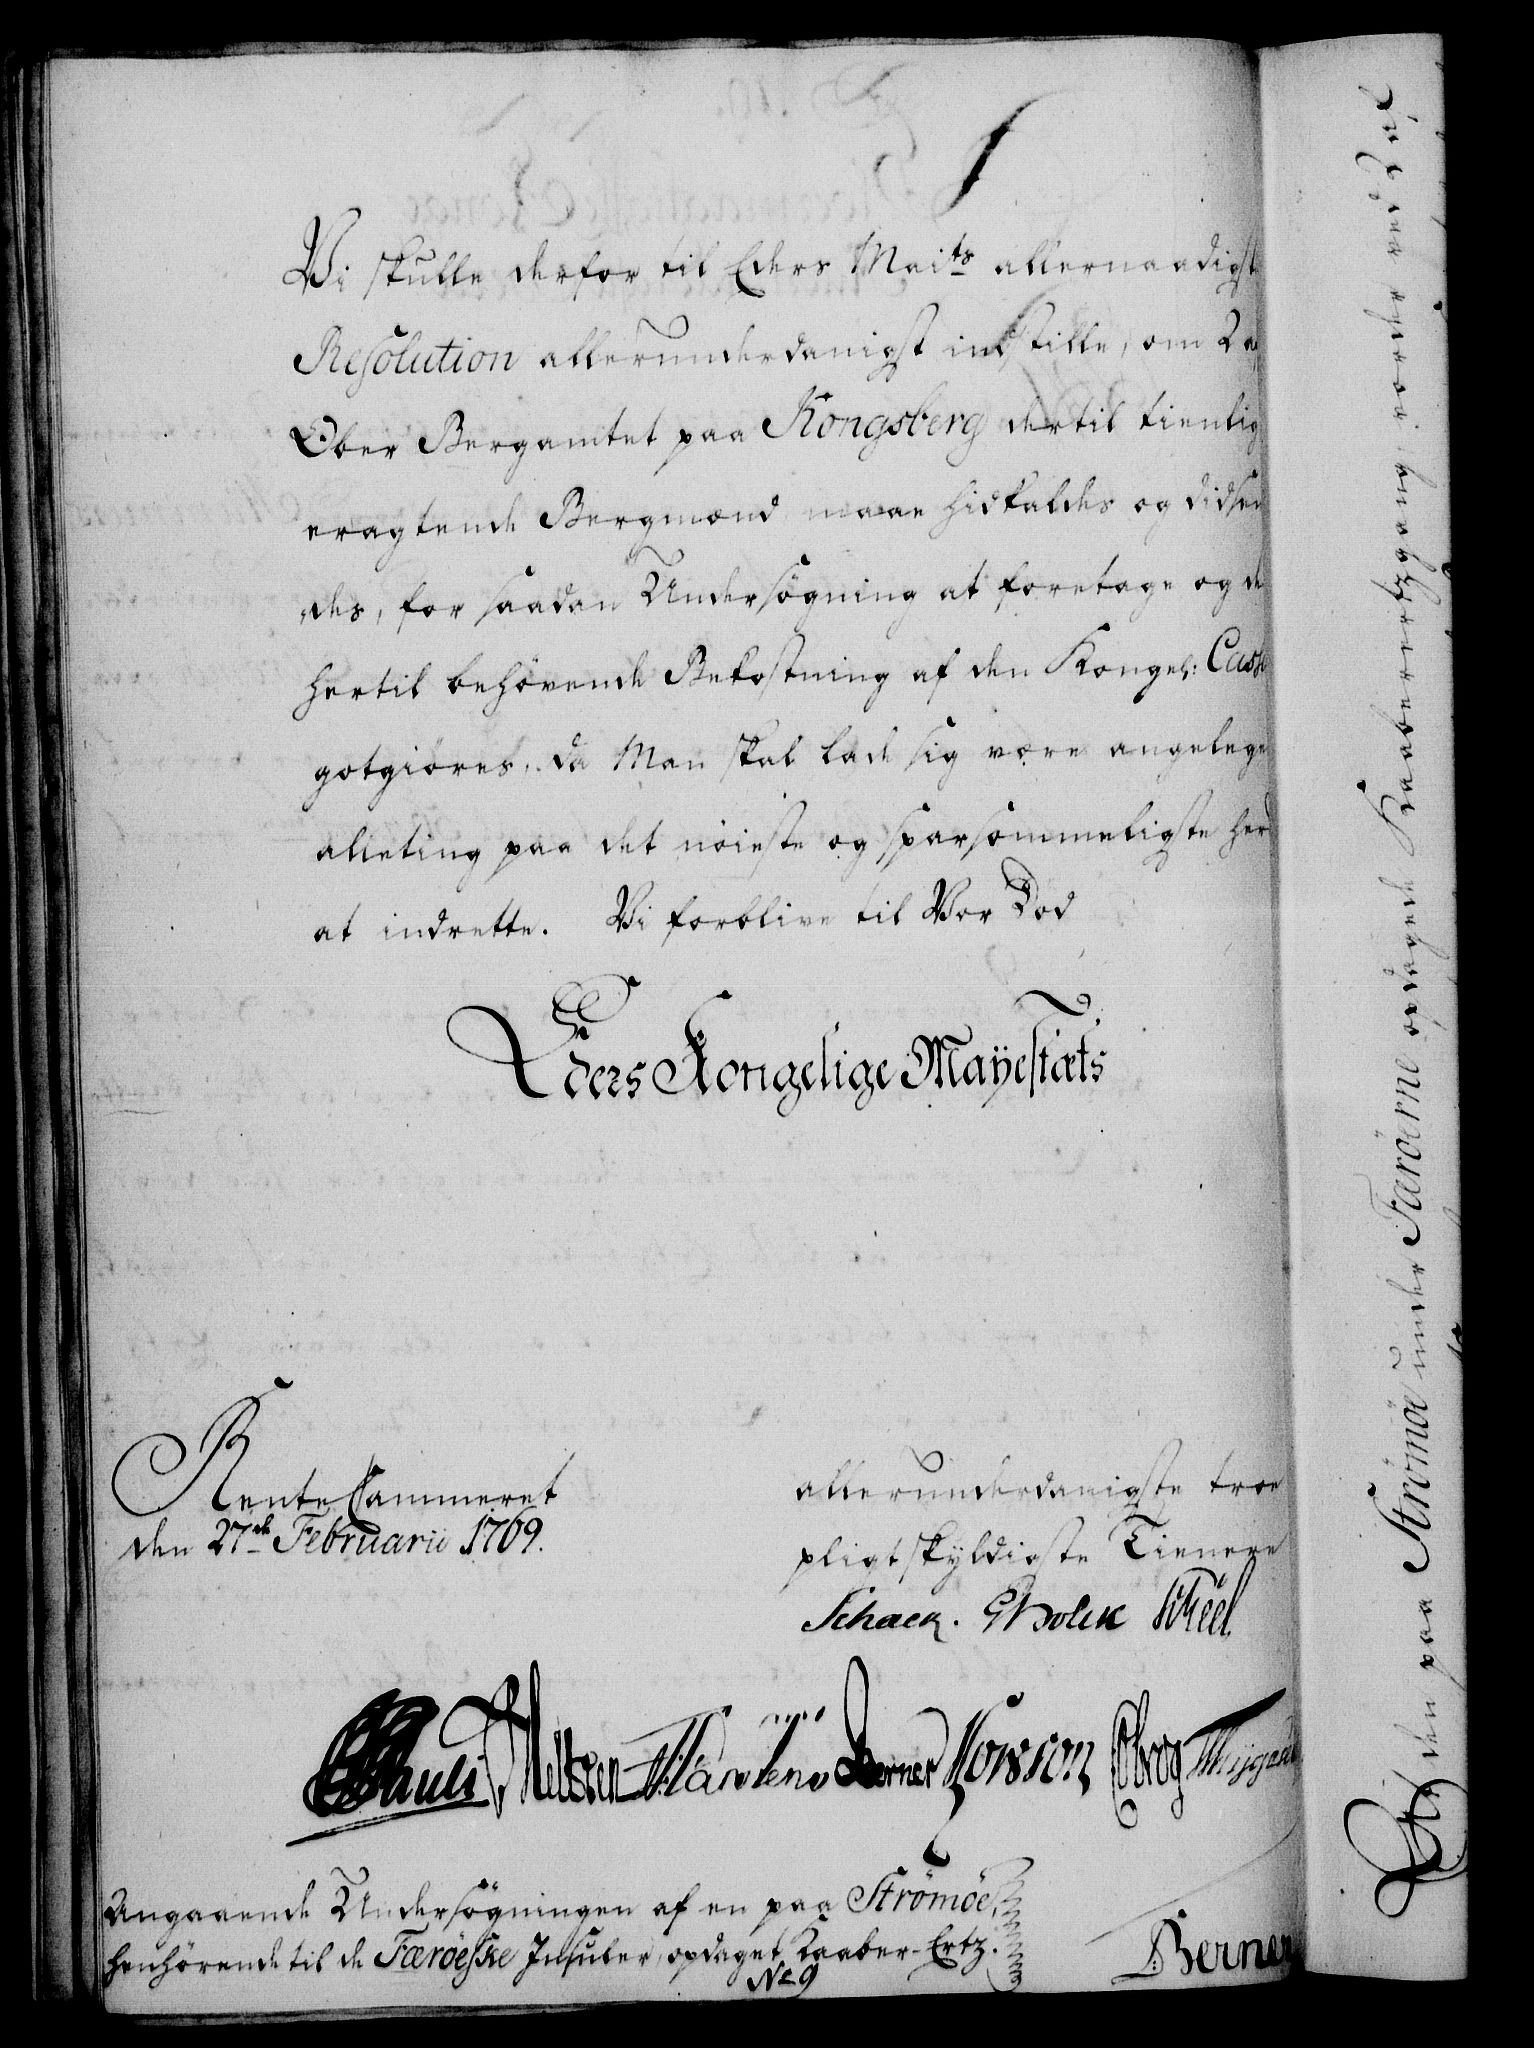 Vi skulle derfor til Eders Maits allernaadigst
Resolution allerunderdanigst indstille, om 2 af
Ober Bergamtet paa Kongsberg dertil tienlig
eragtende Bergmænd maae hidkaldes og didsen
des, for saadan Undersögning at foretage og de
hertil behövende Bekostning af den Kongel: Casse
gotgiöres, da Man skal lade sig være angelege
alleting paa det nöieste og sparsommeligste her
at indrette. Vi forblive til Vor Död
Eders Kongelige Mayestæts
RenteCammeret
den 27de Februarii 1769.
allerunderdanigste troe
pligtskyldigste Tienere
Schack. GHolck Scheel
Pauli Meltzen Martens Berner Horson Obrog
Angaaende Undersögningen af en paa Strömöe,
henhörende til de Færöeske Insuler, opdaget Kaaber-Ertz.
No 9
Berner
den paa Strömöe under Færöerne opdagede Kaaberertzgang, vorder ved 2 af